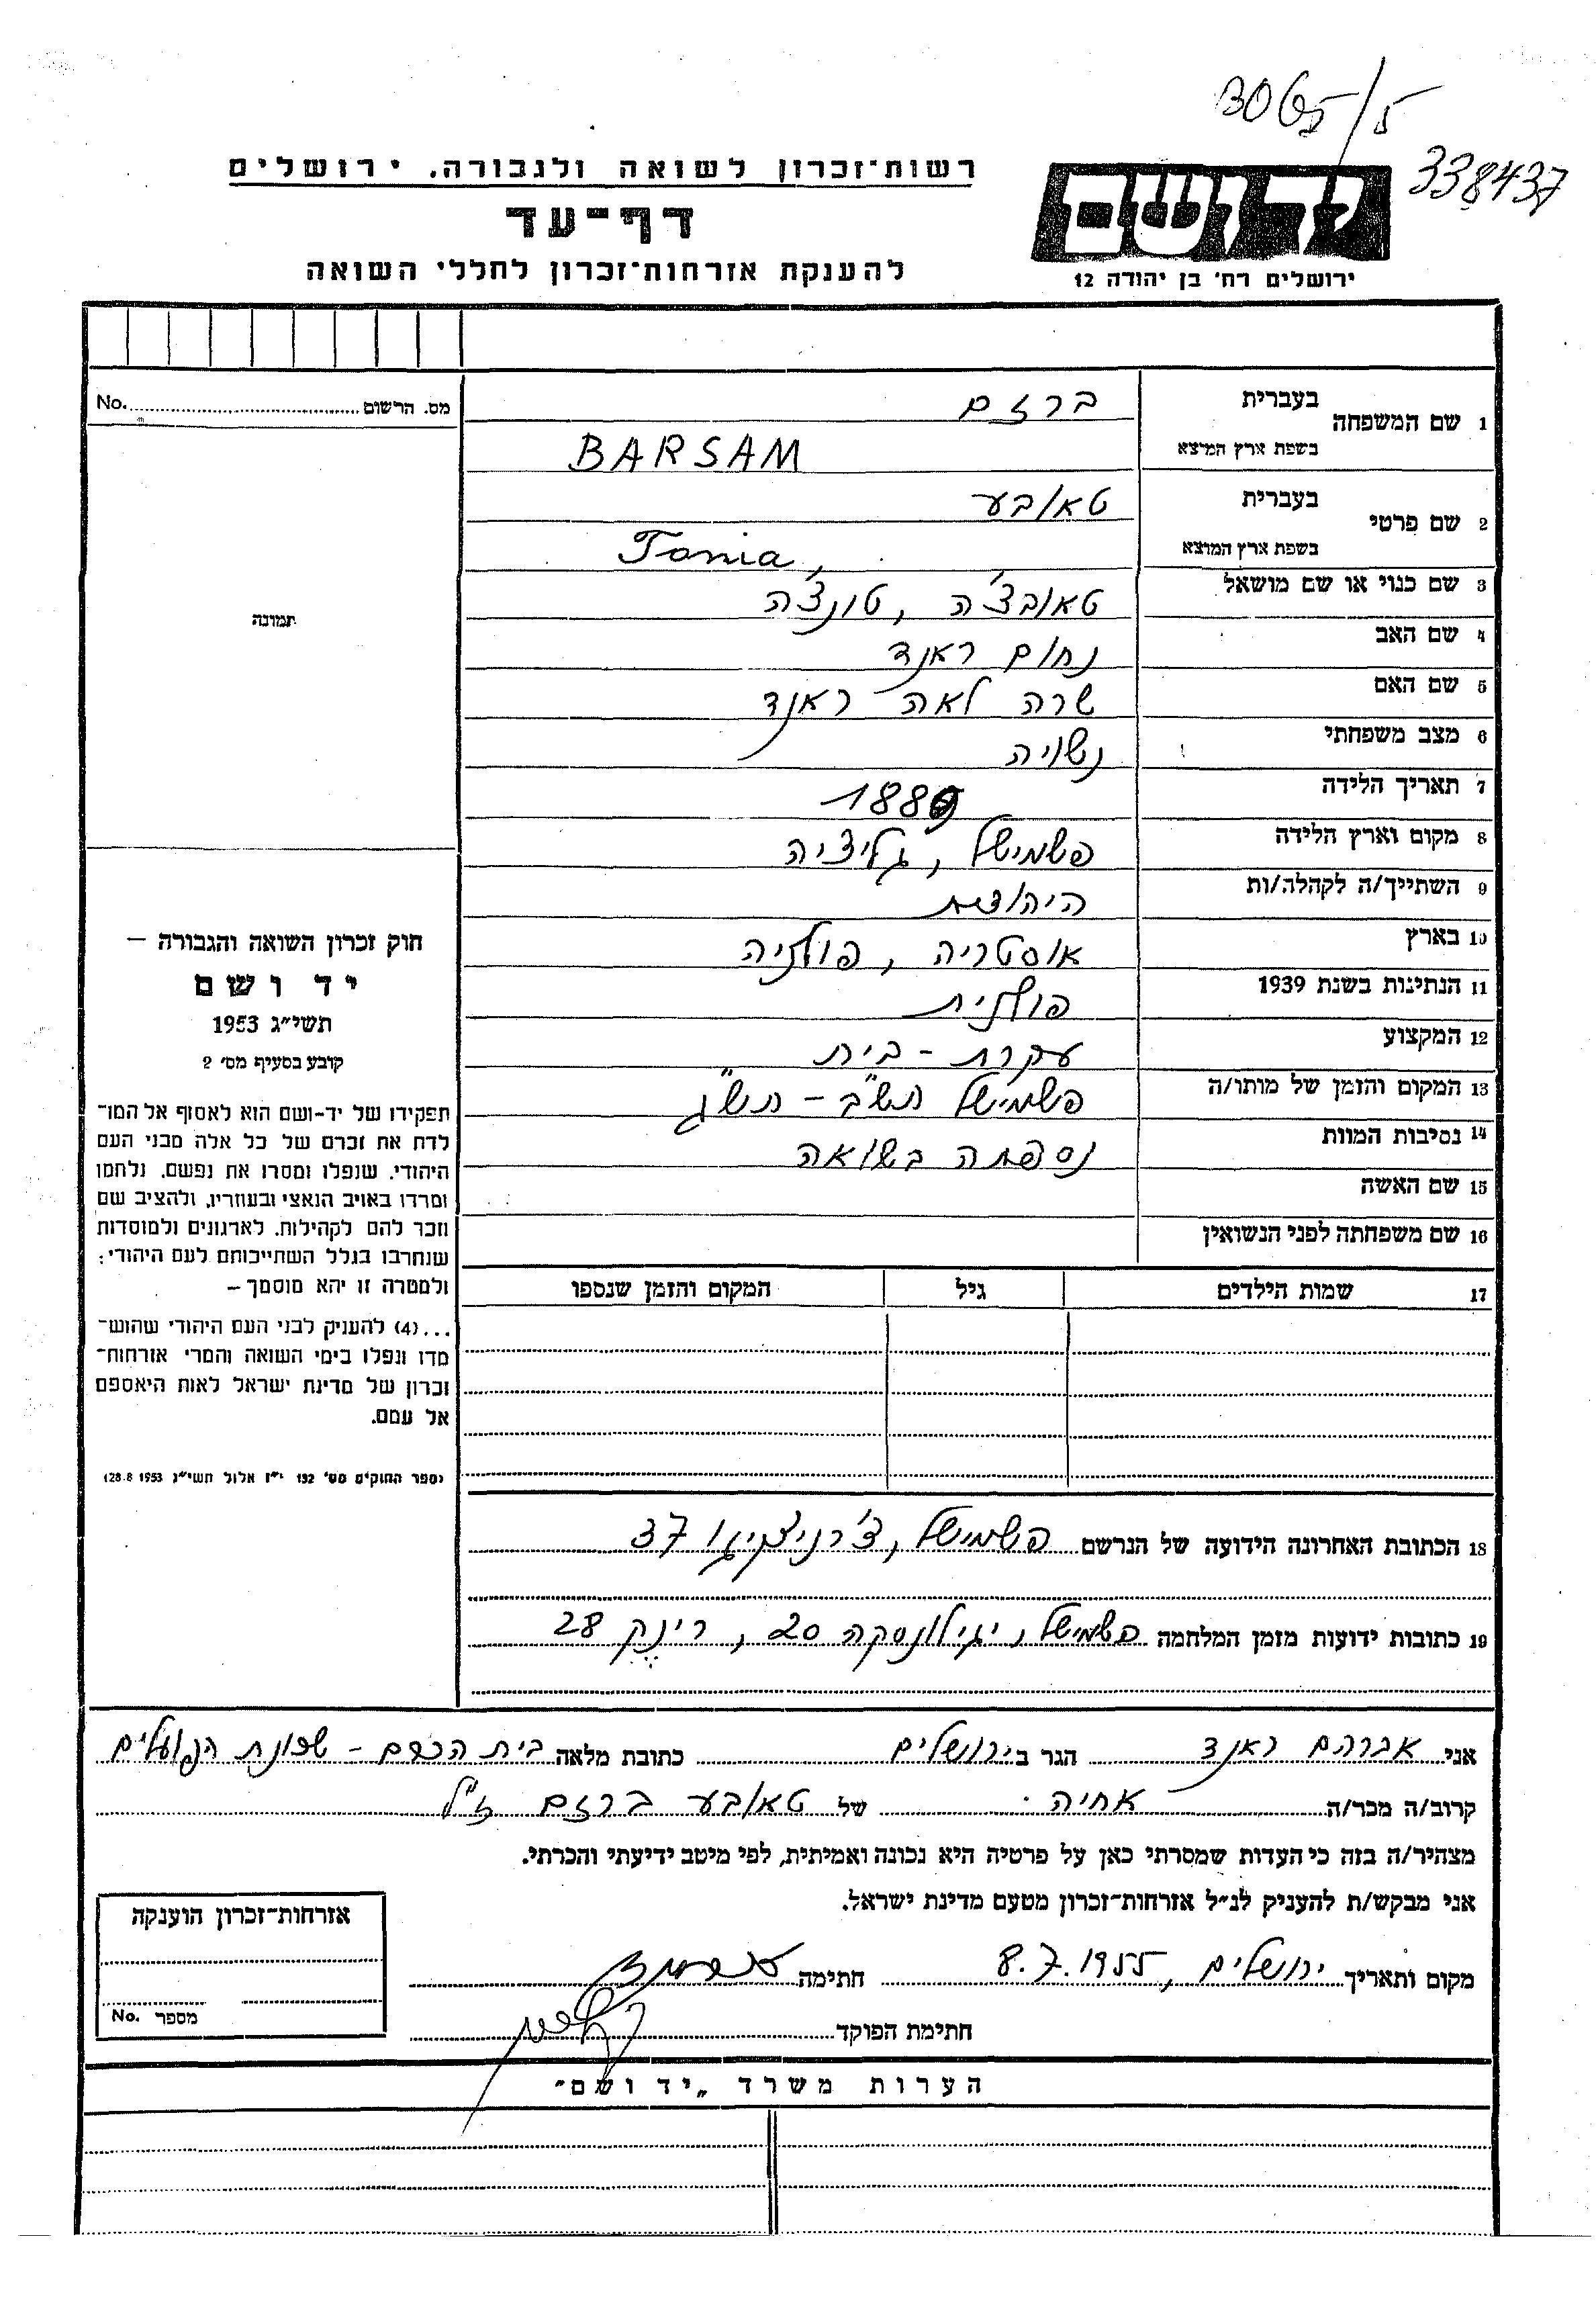 3065/5
338437
רשות־זכרון לשואה ולגבורה. ירושלים
דף־עד
להענקת אזרחות־זכרון לחללי השואה
יד ושם
ירושלים רח' בן יהודה 12
מס. הרשום No.
תמונה
1 שם המשפחה בעברית ברזם
בשפת ארץ המוצא BARSAM
2 שם פרטי בעברית טאובע
בשפת ארץ המוצא Tonia,
3 שם כנוי או שם מושאל טאובצ'ה, טונצ'ה
4 שם האב נחום ראנד
5 שם האם שרה לאה ראנד
6 מצב משפחתי נשויה
7 תאריך הלידה
8 מקום וארץ הלידה פשמישל, גליציה
9 השתייך/ה לקהלה/ות היהודית
10 בארץ אוסטריה, פולניה
11 הנתינות בשנת 1939 פולנית
12 המקצוע עקרת-בית
13 המקום והזמן של מותו/ה פשמישל תש"ב - תש"ג
14 נסיבות המוות נספתה בשואה
15 שם האשה
16 שם משפחתה לפני הנשואין
17 שמות הילדים גיל המקום והזמן שנספו
חוק זכרון השואה והגבורה –
יד ושם
תשי״ג 1953
קובע בסעיף מס׳ 2
תפקידו של יד-ושם הוא לאסוף אל המו־
לדת את זכרם של כל אלה מבני העם
היהודי. שנפלו ומסרו את נפשם. נלחמו
ומרדו באויב הנאצי ובעוזריו. ולהציב שם
וזכר להם לקהילות. לארגונים ולמוסדות
שנחרבו בגלל השתייכותם לעם היהודי:
ולמטרה זו יהא מוסמך –
...(4) להעניק לבני העם היהודי שהוש־
מדו ונפלו בימי השואה והמרי אזרחות־
זכרון של מדינת ישראל לאות היאספם
אל עמם.
(ספר החוקים מס׳ 132 י״ז אלול תשי״ג 28.8 1953)
18 הכתובת האחרונה הידועה של הנרשם פשמישל, 37
19 כתובות ידועות מזמן המלחמה פשמישל, יגילונסקה 20, רינק 28
אני אברהם ראנד הגר ב ירושלים כתובת מלאה בית הכרם - שכונת הפועלים
קרוב/ה מכר/ה אחיה של טאובע ברזם ז"ל
מצהיר/ה בזה כי העדות שמסרתי כאן על פרטיה היא נכונה ואמיתית, לפי מיטב ידיעתי והכרתי.
אני מבקש/ת להעניק לנ״ל אזרחות־זכרון מטעם מדינת ישראל.
מקום ותאריך ירושלים, 8.7.1955 חתימה
חתימת הפוקד
אזרחות־זכרון הוענקה
מספר No.
הערות משרד „יד ושם״